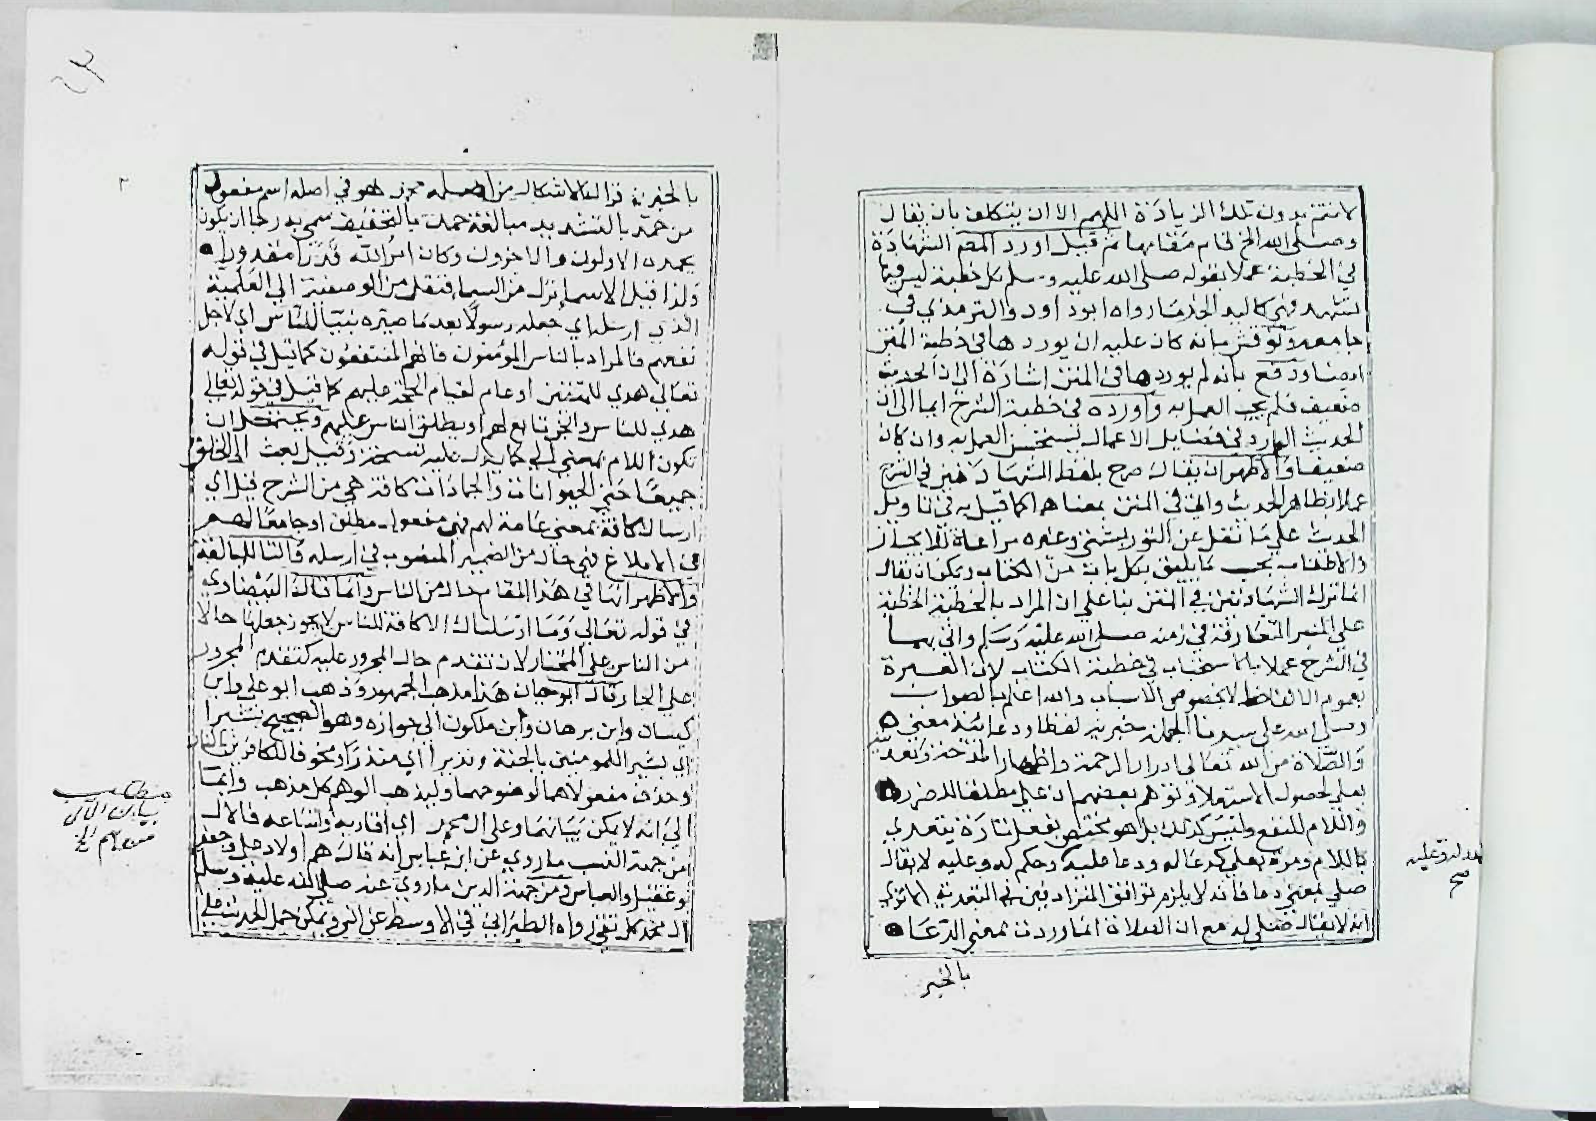 لا تتم بدون تلك الزيادة اللهم الا ان يتكلف بان يقال
وصلى الله الخ قايم مقامها ثم قيل اورد المص الشهادة
في الخطبة عملا بقوله صلى الله عليه وسلم كل خطبة ليس فيها
تشهد فهي كاليد الجذماء رواه ابو داود والترمذي في
جامعه ونوقش بانه كان عليه ان يوردها في خطبة المتن
ايضا ودفع بانه لم يوردها في المتن اشارة الى ان الحديث
ضعيف فلم يجب العمل به واورده في خطبة الشرح ايما الى ان
الحديث الوارد في فضايل الاعمال يستحسن العمل به وان كان
ضعيفا والاظهر ان يقال صرح بلفظ الشهادة في الشرح
عملا بظاهر الحديث واتى في المتن بمعناها كما قيل به في تاويل
الحديث على ما نقل عن التوربشتي وغيره مراعاة للايجاز
والاطناب بحسب ما يليق بكل باب من الكتاب ويمكن ان يقال
انما ترك الشهادتين في المتن بناء على ان المراد بالخطبة الخطبة
على المنبر المتعارفة في زمنه صلى الله عليه وسلم واتى بهما
في الشرح عملا بالاستحباب في خطبة الكتاب لان العبرة
بعموم الالفاظ لا بخصوص الاسباب والله اعلم بالصواب
وصلى الله على سيدنا الجملة خبرية لفظا ودعائية معنى
والصلاة من الله تعالى ادرار الرحمة واظهار المدحة وتعديته
بعلى لحصول الاستعلاء وتوهم بعضهم ان على مطلقا للضرر
واللام للنفع وليس كذلك بل هو مختص بفعل تارة يتعدى
باللام ومرة بعلى كدعا له ودعا عليه وحكم له وعليه لا يقال
صلى بمعنى دعا فانه لا يلزم توافق المترادفين في التعدية الا ترى
انه لا يقال صلى له مع ان الصلاة انما وردت بمعنى الدعاء
بالخير
له وعليه
صح
٢
بالخير فزال الاشكال من اصله محمد هو في اصله اسم مفعول
من حمد بالتشديد مبالغة حمدت بالتخفيف سمي به رجا ان يكون
يحمده الاولون والاخرون وكان امر الله قدرا مقدورا
ولذا قيل الاسماء تنزل من السماء فنقل من الوصفية الى العلمية
الذي ارسله اي جعله رسولا بعد ما صيره نبيا للناس اي لاجل
نفعهم فالمراد بالناس المؤمنون فانهم المنتفعون كما قيل في قوله
تعالى هدى للمتقين او عام لقيام الحجة عليهم كما قيل في قوله تعالى
هدى للناس والجن تابع لهم او يطلق الناس عليهم ويحتمل ان
تكون اللام بمعنى الى كما يدل عليه نسخة وقيل بعث الى الخلق
جميعا حتى الحيوانات والجمادات كافة هي من الشرح قيل اي
ارسالة كافة بمعنى عامة لهم فهي مفعول مطلق او جامعا لهم
في الابلاغ فهي حال من الضمير المنصوب في ارسله والتا للمبالغة
والاظهر انها في هذا المقام حال من الناس واما قال البيضاوي
في قوله تعالى وما ارسلناك الا كافة للناس لا يجوز جعلها حالا
من الناس على المختار لان تقدم حال المجرور عليه كتقدم المجرور
على الجار قال ابو حيان هذا مذهب الجمهور وذهب ابو علي وابن
كيسان وابن برهان وابن ملكون الى جوازه وهو الصحيح بشيرا
اي بشير للمومنين بالجنة ونذيرا اي منذرا ومخوفا للكافرين بالنار
وحذف مفعولاهما لوضوحهما وليذهب الوهم كل مذهب وايما
الى انه لا يكن بيانهما وعلى ال محمد اي اقاربه واتباعه فالال
من جهة النسب ما روي عن ابن عباس انه قال هم اولاد علي وجعفر
وعقيل والعباس ومن جهة الدين ما روي عنه صلى الله عليه وسلم
ال محمد كل تقي رواه الطبراني في الاوسط عن انس ويمكن حمل الحديث على
مطلب
بيان الال